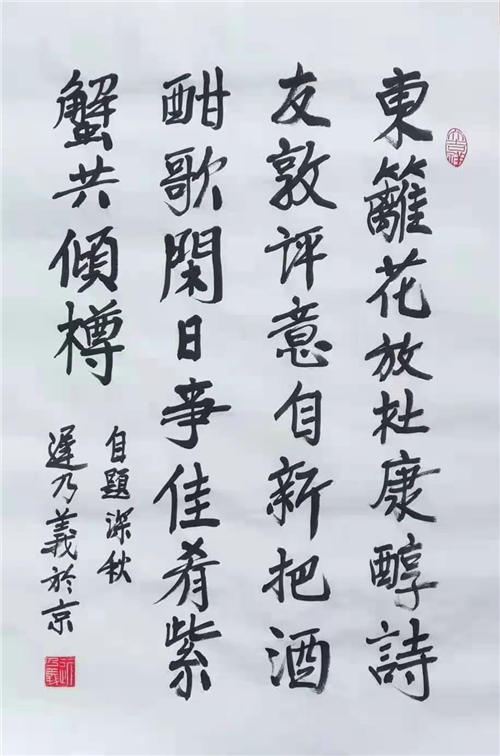 東籬花放杜康醇詩
友敦評意自新把酒
酣歌閑日事佳肴紫
蟹共傾樽
自題深秋
遲乃義於京